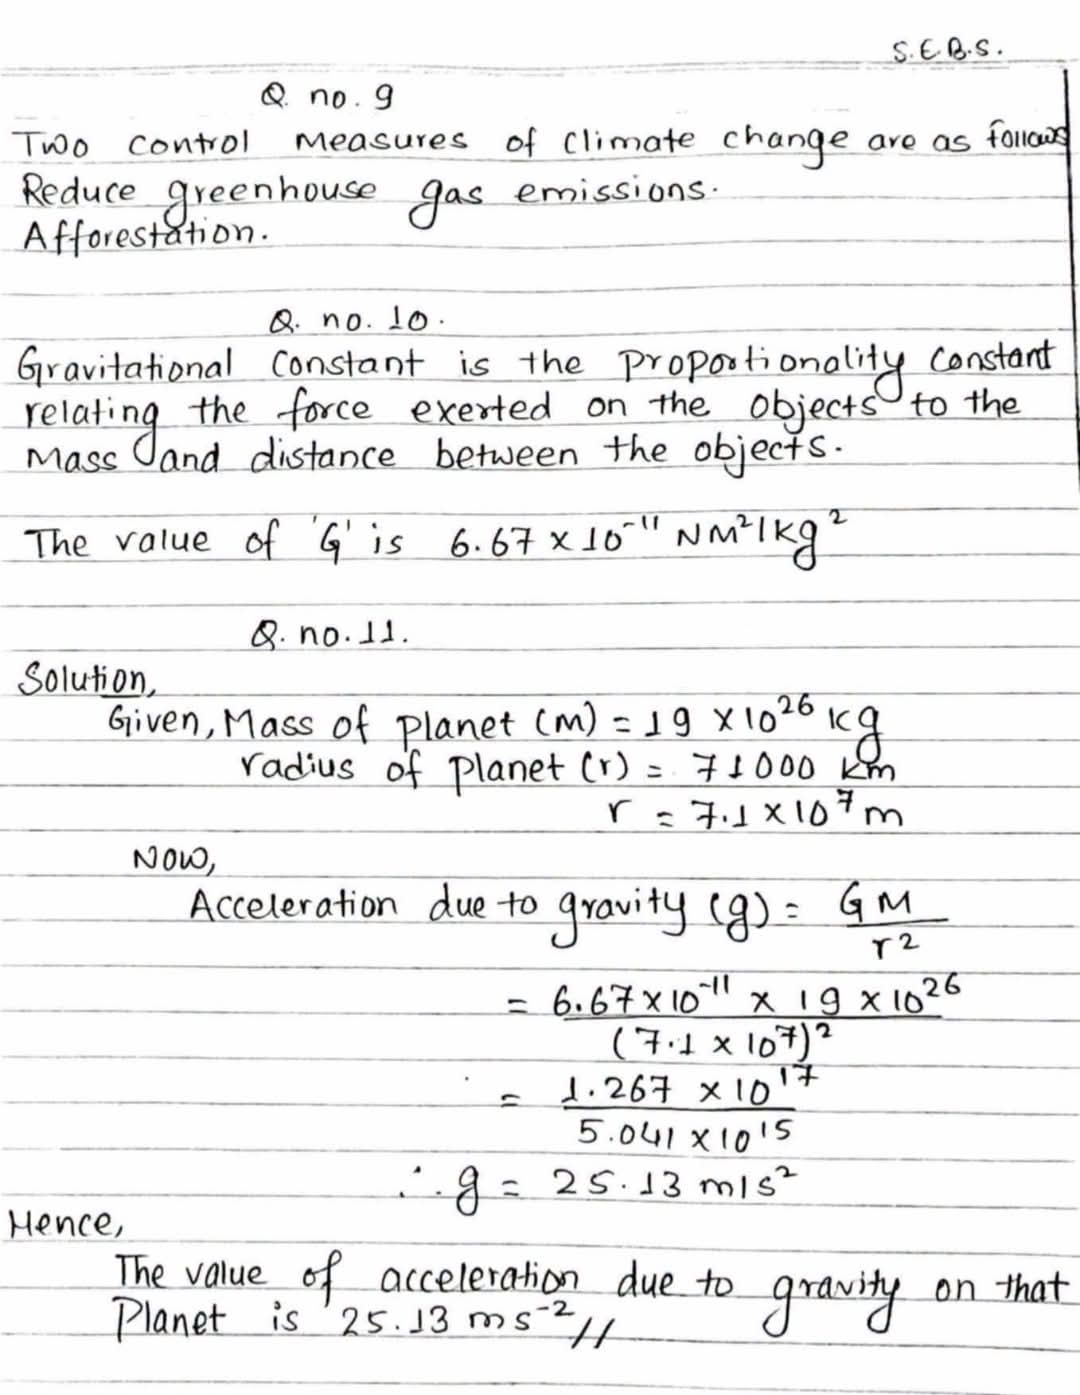 S.E.B.S.
Q. no. 9
Two control measures of climate change are as follows
Reduce greenhouse gas emissions.
Afforestation.
Q. no. 10.
Gravitational constant is the proportionality constant
relating the force exerted on the objects to the
Mass and distance between the objects.
The value of 'G' is 6.67 × 10⁻¹¹ NM²/kg²
Q. no. 11.
Solution,
Given, Mass of planet (m) = 19 × 10²⁶ kg
radius of planet (r) = 71000 km
r = 7.1 × 10⁷ m
Now,
Acceleration due to gravity (g) = GM
r²
= 6.67 × 10⁻¹¹ × 19 × 10²⁶
(7.1 × 10⁷)²
= 1.267 × 10¹⁷
5.041 × 10¹⁵
∴ g = 25.13 m/s²
Hence,
The value of acceleration due to gravity on that
Planet is 25.13 ms⁻²//